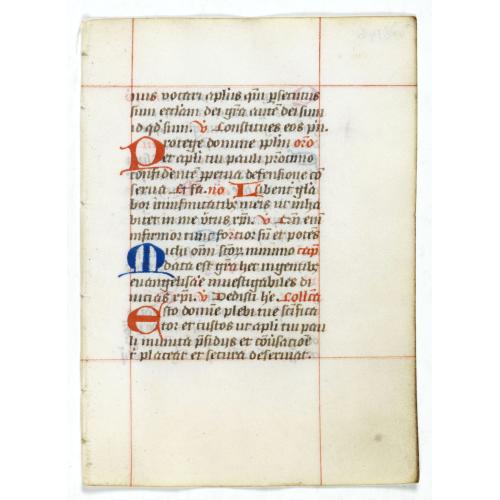 nus vocari aplus qm psecutus
sum eccliam dei gra aute dei sum
id qd sum. v Constitues eos pn.
Protege domine pplm oro
et apli tui pauli procinio
confidente ppetua defensione co
serua. no Libent gla
bor infirmitatib; meis ut inha
bitet in me virtus xpi. v Cu eni
infirmor tunc fortior su et potes
Michi oim scor minimo cap
data est gra hec in gentib;
euangelisare inuestigabiles di
uicias xpi. v Dedisti he. Collecta
Esto domine plebi tue scificta
tor et custos ut apli tui pau
li munita psidijs et couersacioe
t placeat et secura deseruiat.